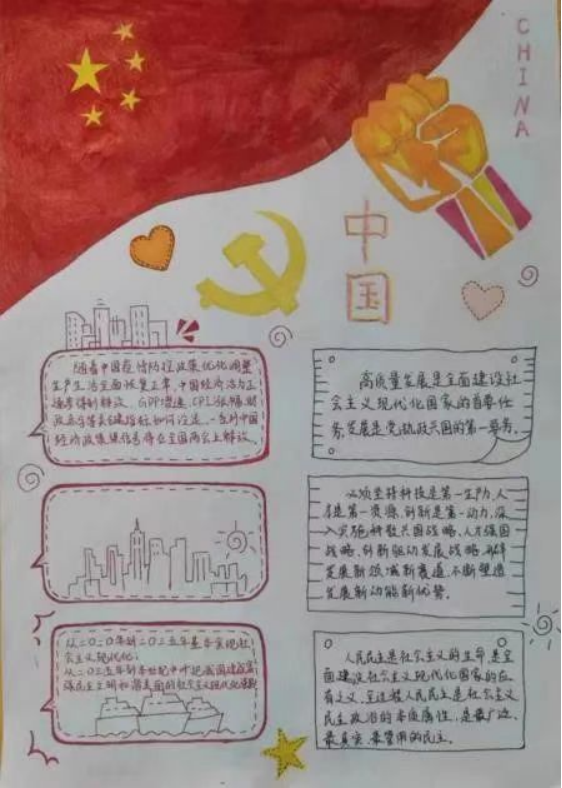 CHINA
中国
随着中国疫情防控政策优化调整
生产生活全面恢复正常，中国经济活力正
GDP增速、CPI涨幅、财
经济政策 信号将在全国两会上解读。
高质量发展是全面建设社
会主义现代化国家的首要任
务，发展是党执政兴国的第一要务。
必须坚持科技是第一生产力、人
才是第一资源、创新是第一动力，深
入实施科教兴国战略、人才强国
战略、创新驱动发展战略，开辟
发展新领域新赛道，不断塑造
发展新动能新优势。
从二〇二〇年到二〇三五年基本实现社
会主义现代化；
从二〇三五年到本世纪中叶把我国建成富
强民主文明和谐美丽的社会主义现代化强国
人民民主是社会主义的生命，是全
面建设社会主义现代化国家的应
有之义。全过程人民民主是社会主义
民主政治的本质属性，是最广泛、
最真实、最管用的民主。